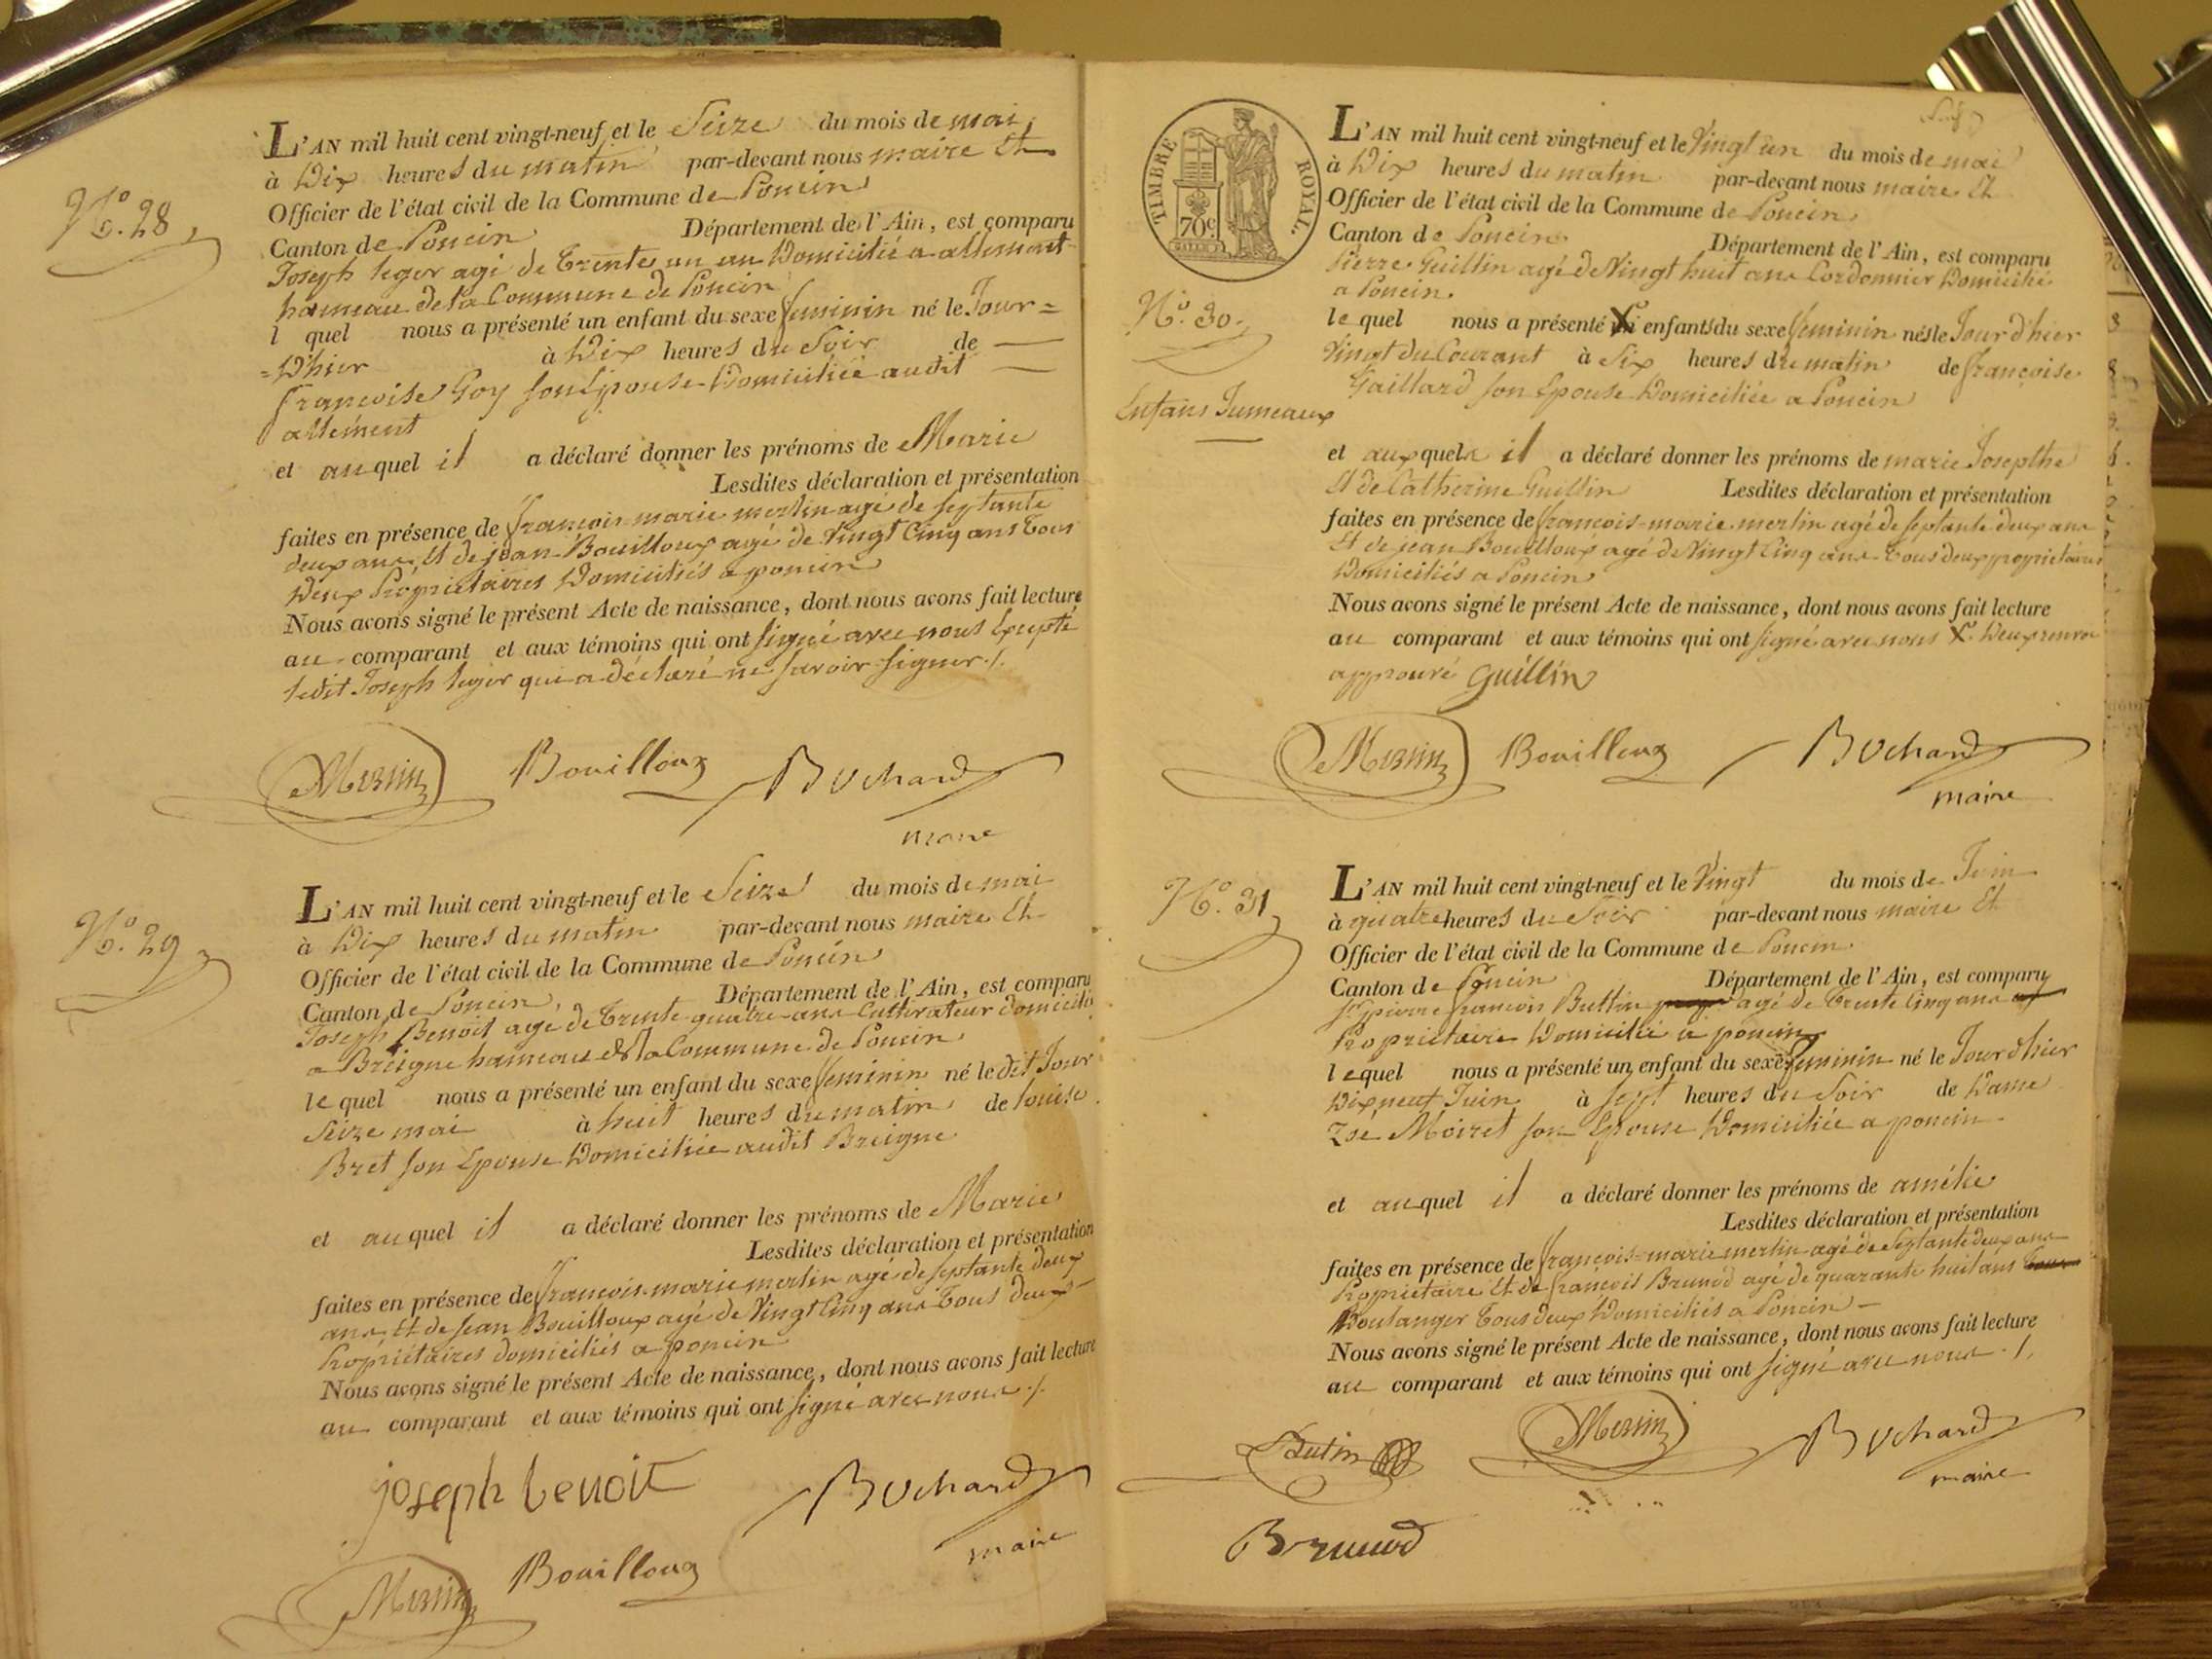 N.º 28
L'AN mil huit cent vingt-neuf et le Seize du mois de mai
à Dix heures du matin par-devant nous maire Et
Officier de l'état civil de la Commune de Poncin
Canton de Poncin Département de l'Ain, est comparu
Joseph leger agé de Trente un an Domicilié a allement
hameau de la Commune de Poncin
l quel nous a présenté un enfant du sexe feminin né le Jour =
= D'hier à Dix heures du Soir de
françoise Goy son Epouse Domiciliée audit
allement
et auquel il a déclaré donner les prénoms de Marie
Lesdites déclaration et présentation
faites en présence de françois marie merlin agé de septante
deux ans Et de jean Bouilloux agé de Vingt Cinq ans Tous
Deux Propriétaires Domiciliés a poncin
Nous avons signé le présent Acte de naissance, dont nous avons fait lecture
au comparant et aux témoins qui ont signé avec nous Excepté
ledit Joseph leger qui a déclaré ne savoir signer ./.
Merlin Bouilloux Bochard
maire
N.º 29
L'AN mil huit cent vingt-neuf et le Seize du mois de mai
à Dix heures du matin par-devant nous maire Et
Officier de l'état civil de la Commune de Poncin
Canton de Poncin Département de l'Ain, est comparu
Joseph Benoit agé de Trente quatre ans Cultivateur domicilié
a Breigne hameau de la Commune de Poncin
le quel nous a présenté un enfant du sexe feminin né ledit Jour
Seize mai à huit heures du matin de louise
Bret son Epouse Domiciliée audit Breigne
et auquel il a déclaré donner les prénoms de Marie
Lesdites déclaration et présentation
faites en présence de françois marie merlin agé de septante deux
ans Et de Jean Bouilloux agé de Vingt Cinq ans Tous deux
Propriétaires domiciliés a poncin
Nous avons signé le présent Acte de naissance, dont nous avons fait lecture
au comparant et aux témoins qui ont signé avec nous ./.
joseph benoit Bochard
maire
Merlin Bouilloux
TIMBRE ROYAL.
70 c.
N.º 30
Enfans Jumeaux
L'AN mil huit cent vingt-neuf et le Vingt un du mois de mai
à Dix heures du matin par-devant nous maire Et
Officier de l'état civil de la Commune de Poncin
Canton de Poncin Département de l'Ain, est comparu
Pierre Guillin agé de Vingt huit ans Cordonnier Domicilié
a Poncin
le quel nous a présenté enfants du sexe feminin nés le Jour d'hier
Vingt du Courant à Six heures du matin de françoise
Gaillard son Epouse Domiciliée a Poncin
et auxquels il a déclaré donner les prénoms de marie Josepthe
Et de Catherine Guillin Lesdites déclaration et présentation
faites en présence de françois-marie merlin agé de septante deux ans
Et de jean Bouilloux agé de Vingt Cinq ans Tous deux propriétaires
Domiciliés a Poncin
Nous avons signé le présent Acte de naissance, dont nous avons fait lecture
au comparant et aux témoins qui ont signé avec nous X Deux renvoi
approuvé Guillin
Merlin Bouilloux Bochard
maire
N.º 31
L'AN mil huit cent vingt-neuf et le Vingt du mois de Juin
à quatre heures du Soir par-devant nous maire Et
Officier de l'état civil de la Commune de Poncin
Canton de Poncin Département de l'Ain, est comparu
Sr pierre françois Buttin agé de Trente Cinq ans
Propriétaire Domicilié a poncin
lequel nous a présenté un enfant du sexe feminin né le Jour d'hier
Dix neuf Juin à sept heures du Soir de Dame
Zoé Moiret son Epouse Domiciliée a poncin
et auquel il a déclaré donner les prénoms de amélie
Lesdites déclaration et présentation
faites en présence de françois-marie merlin agé de Septante deux ans
Propriétaire Et de françois Brunod agé de quarante huit ans
Boulanger Tous deux Domiciliés a Poncin
Nous avons signé le présent Acte de naissance, dont nous avons fait lecture
au comparant et aux témoins qui ont signé avec nous ./.
Butin Merlin Bochard
maire
Brunod